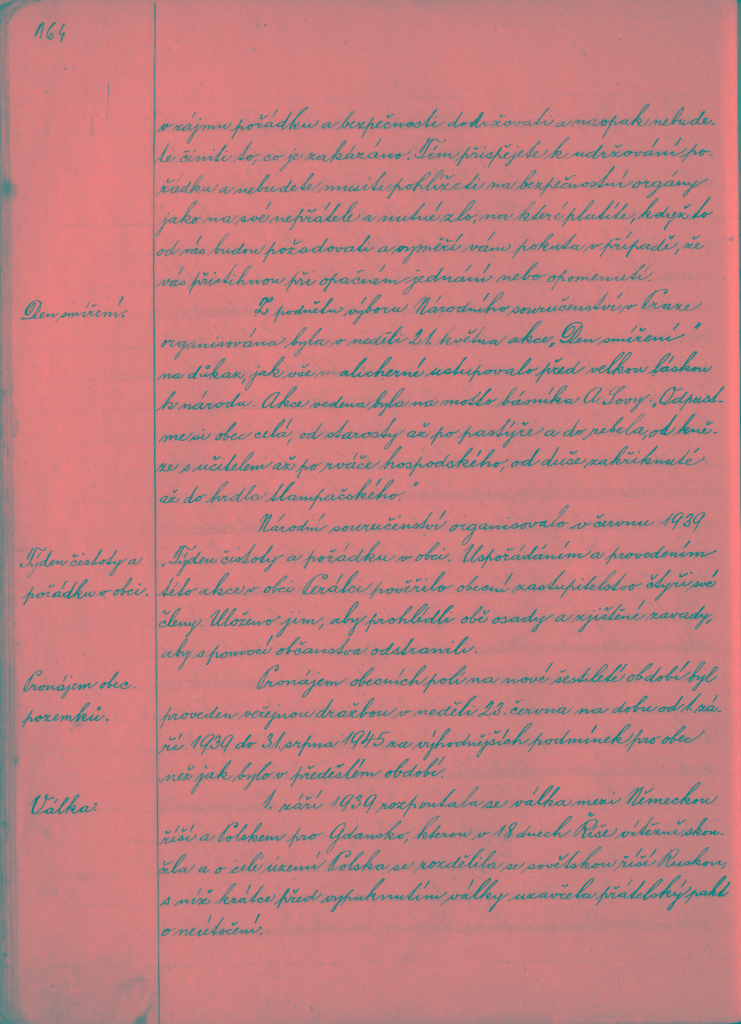 164
v zájmu pořádku a bezpečnosti dodržovati a naopak nebude-
te činiti to, co je zakázáno. Tím přispějete k udržování po-
řádku a nebudete musiti pohlížeti na bezpečnostní orgány
jako na své nepřátele a nutné zlo, na které platíte, když to
od vás budou požadovati a vyměří vám pokutu v případě, že
vás přistihnou při opačném jednání nebo opomenutí.
Den smíření.
Z podnětu výboru Národního souručenství v Praze
organisována byla v neděli 21. května akce „Den smíření"
na důkaz, jak vše malicherné ustupovalo před velkou láskou
k národu. Akce vedena byla na motto básníka A. Sovy: „Odpust-
me si obec celá, od starosty až po pastýře a do rebela, od kně-
ze s učitelem až po rváče hospodského, od duše zakřiknuté
až do hrdla tlampačského."
Národní souručenství organisovalo v červnu 1939
Týden čistoty a
pořádku v obci.
„Týden čistoty a pořádku v obci. Uspořádáním a provedením
této akce v obci Perálci pověřilo obecní zastupitelstvo čtyři své
členy. Uloženo jim, aby prohlédli obě osady a zjištěné zavady,
aby s pomocí občanstva odstranili.
Pronájem obec.
pozemků.
Pronájem obecních polí na nové šestileté období byl
proveden veřejnou dražbou v neděli 23. června na dobu od 1. zá-
ří 1939 do 31. srpna 1945 za výhodnějších podmínek pro obec
než jak bylo v předešlém období.
Válka.
1. září 1939 rozpoutala se válka mezi Německou
říší a Polskem pro Gdansko, kterou v 18 dnech Říše vítězně skon-
čila a o celé území Polska se rozdělila se sovětskou říší Ruskou,
s níž krátce před vypuknutím války uzavřela přátelský pakt
o neútočení.